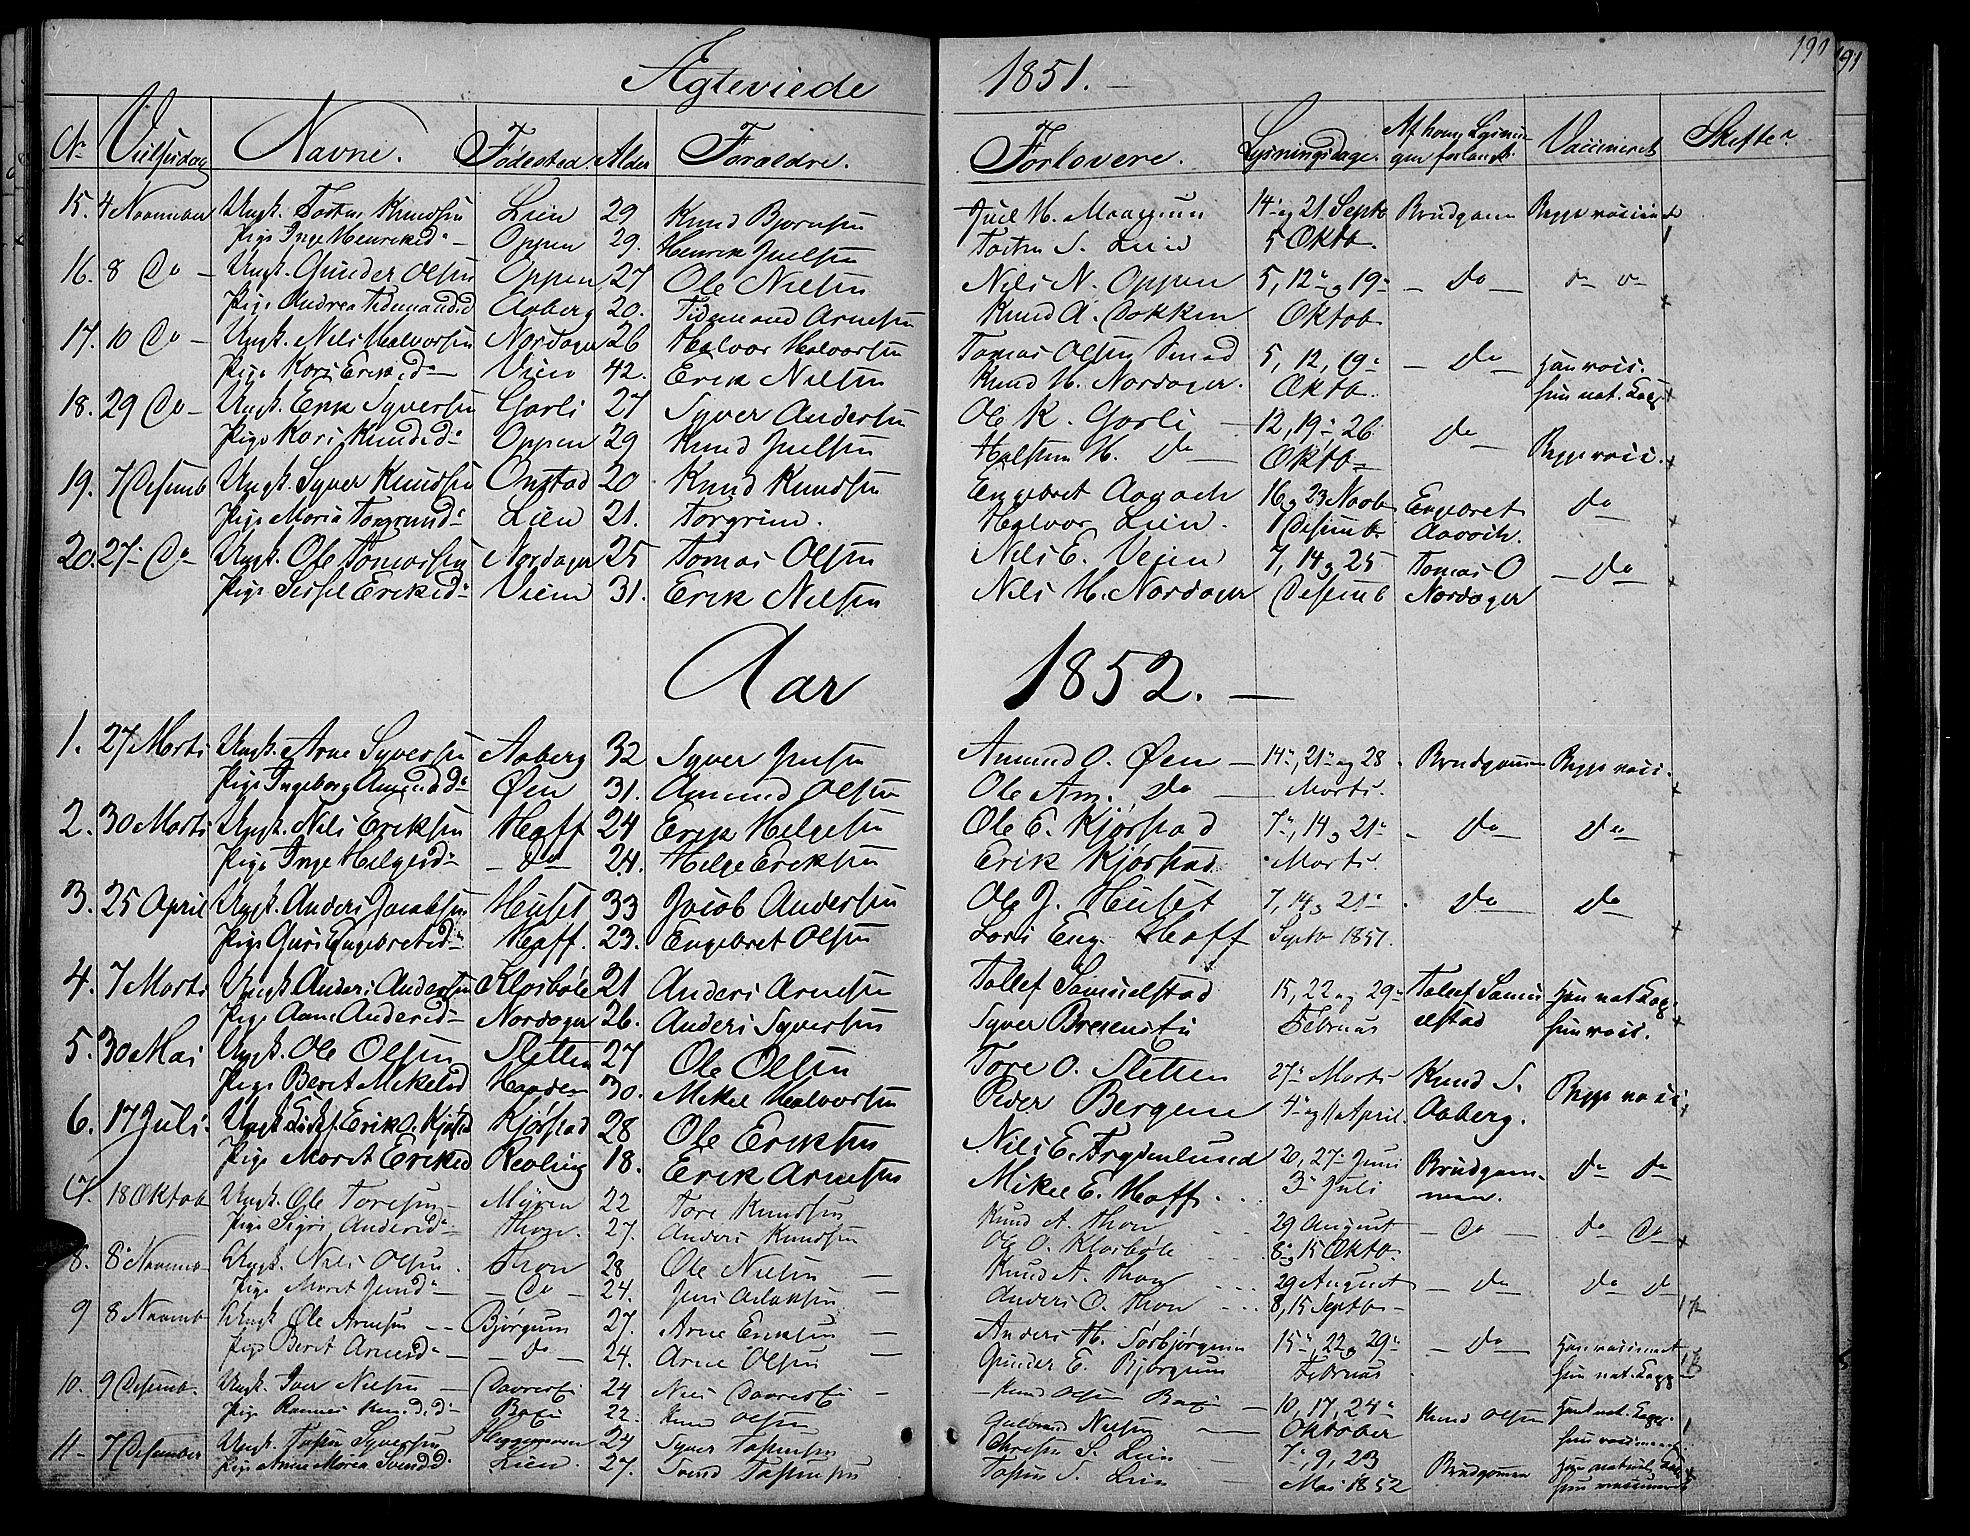 190
191
Ægteviede 1851.
No Vielsesdag Navne. Fødested. Alder Forældre. Forlovere. Lysningsdage. Af hvem Lysnin- Vaccineret Skifte
gen forlangt.
15. 4 November Ungk. Tosten Knudsen Lien 29 Knud Bjørnsen Juel H. 14de og 21 Septb Brudgom Begge vaccineret
Pige Inge Henriksd. Oppen 29. Henrik Juelsen Tosten S. Lien 5 Oktob.
16. 8 Do Ungk. Gunder Olsen Oppen 27 Ole Nielsen Nils N. Oppen 5, 12te og 19de Do
Pige Andrea Tidemandsd Aaberg 20. Tidemand Arnesen Knud A. Bakken Oktob.
17. 10 Do Ungk. Nils Halvorsen Nordager 26 Halvor Halvorsen Tomas Olsen 5, 12, 19de Do Han vacc.
Pige Kari Eriksd. Vien 42. Erik Nielsen Knud H. Nordager. Oktb. hun nat. Kop.
18. 29 Do Ungk. Erik Syversen Garli 27 Syver Andersen Ole K. Garli 12, 19de, 26. Do Begge vacc.
Pige Kari Knudsd. Oppen 29 Knud Juelsen Halsten H. Do Oktb.
19. 7 Desemb Ungk. Syver Knudsen Onstad 20 Knud Knudsen Engebret 16 og 23 Novb Engebret Do
Pige Maria Torgrimsd. Lien 21. Torgrim. Halvor Lien. 1 Desembr
20. 27de Do Ungk. Ole Tomassen Nordager 25 Tomas Olsen Nils E. Veien 7, 14 og 25 Tomas O Do
Pige Sissel Eriksd. Vien 31. Erik Nielsen Nils H. Nordager Desemb Nordager
Aar 1852.
1. 27 Marts Ungk. Arne Syversen Aaberg 32 Syver Jensen Amund O. Øen 14de, 21de og 28 Brudgommen Begge vacc.
Pige Ingeborg Amundsd. Øen 31. Amund Olsen Ole Am. Do Marts.
2. 30 Marts Ungk. Nils Eriksen Hoff 24 Erik Helgesen Ole E. Kjørstad 7de, 14 og 21de Do Do
Pige Inge Helgesd. Do 24. Helge Eriksen Erik Kjørstad Marts.
3. 25 April Ungk. Anders Jacobsen Huset 33 Jacob Andersen Ole J. Huset 7, 14 og 21de Do Do
Pige Guri Engebretsd. Hoff. 23. Engebret Olsen Lars Eng. Hoff Septb 1851.
4. 7 Marts Ungk Anders Andersen Klosbøle 21 Anders Arnesen Tollef Samuelstad 15, 22 og 29de Tollef Samu Han nat. Kop.
Pige Anne Andersd. Nordager 26. Anders Syversen Syver Februar elstad hun vacc.
5. 30 Mai Ungk. Ole Olsen Sletten 27 Ole Olsen Tore O. Sletten 27de Marts Knud S. Begge vacc
Pige Beret Mikelsd 30. Mikel Halvorsen Peder Bergene 4de og 11te April. Aaberg.
6. 17 Juli Ungk. Erik O. Kjørstad Kjørstad 28 Ole Eriksen Nils E. Frydenlund 20, 27de Juni Brudgom- Do Do
Pige Marit Eriksd 18. Erik Arnesen Mikel E. Hoff 3de Juli men.
7. 18 Oktob Ungk. Ole Toresen Myren 22 Tore Knudsen Knud A. Thon 29 August Do Do Do
Pige Sigri Andersd. Thon. 27. Anders Knudsen Ole O. Klosbøle 8de og 15 Oktb.
8. 8de Novemb Ungk. Nils Olsen Thon 28 Ole Nielsen Knud A. Thon 29 August Do Do Do
Pige Marit Jensd. Do 24. Jens Anders O. Thon 8, 15 Septb
9 8 Novemb Ungk Ole Arnesen Bjørgum 27. Arne Eriksen Anders H. Sørbjørgum 15de, 22 og 29de Do Han vaccineret
Pige Berit Arnesd. Do 24. Arne Olsen Gunder E. Bjørgum Februar hun nat. Kopp
10. 9 Desemb. Ungk. Iver Nielsen 24 Niels Knud Olsen 10, 17, 24de Knud Olsen Han nat. Kop.
Pige Knudsd. 22. Knud Olsen Gulbrand Nielsen Oktober hun vaccineret
11 7 Desember Ungk. Tosten Syversen 24 Syver Tostensen Christen S. Lien 7de, 9, 23 Brudgommen
Pige Anne Maria Svendsd. Lien. 27. Svend Tostensen Tosten S. Lien Mai 1852 hun vaccineret